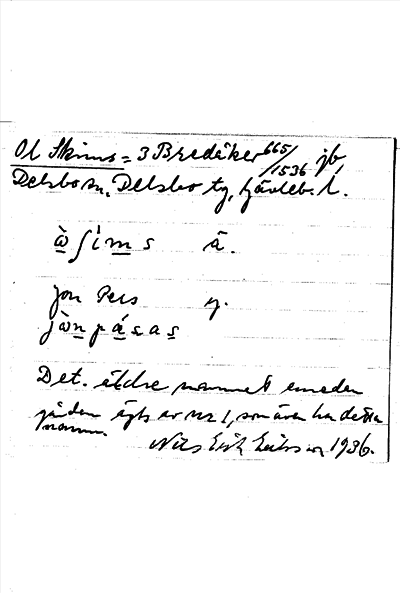 Ol Skinns = 3 Bredåker 665/1536 jb
Delsbo sn, Delsbo tg, Gävleb. l.
ä.
Jon Pers y.
Det. äldre namnet emedan
gården ägts av nr 1, som även har detta
namn.
Nils Erik Eriksson 1936.